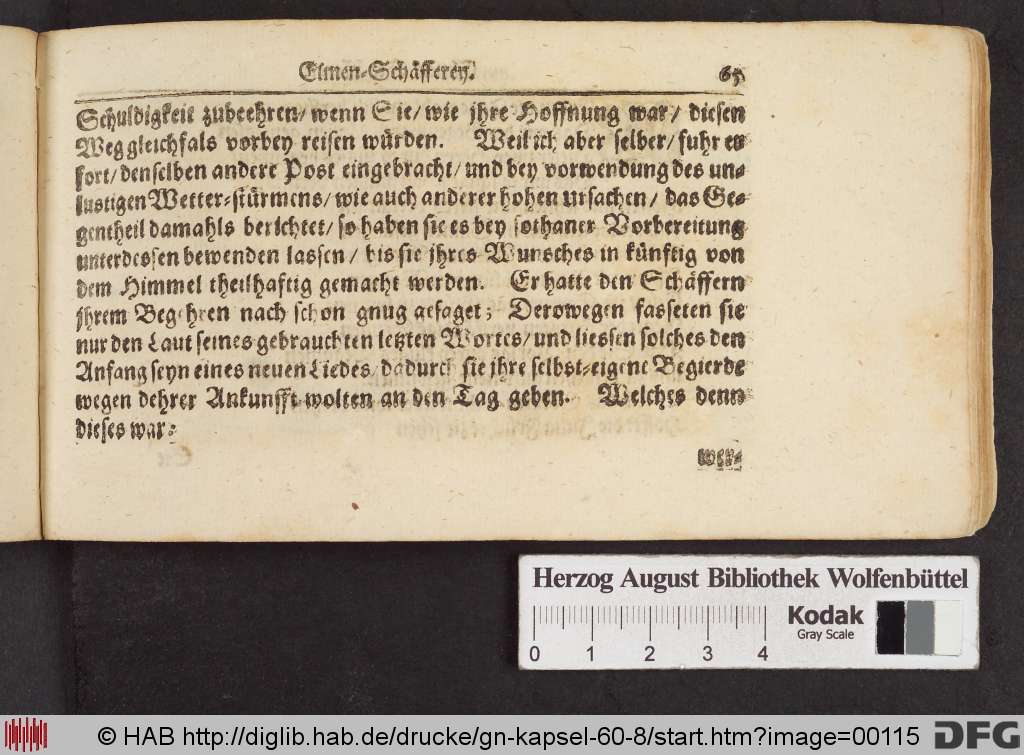 Elmen-Schäfferey. 65
Schuldigkeit zubeehren/ wenn Sie/ wie jhre Hoffnung war/ diesen
Weg gleichfals vorbey reisen würden. Weil ich aber selber/ fuhr er
fort/ denselben andere Post eingebracht/ und bey vorwendung des un-
lustigen Wetter-stürmens/ wie auch anderer hohen ursachen/ das Ge-
gentheil damahls berichtet/ so haben sie es bey sothaner Vorbereitung
unterdessen bewenden lassen/ bis sie jhres Wunsches in künftig von
dem Himmel theilhaftig gemacht werden. Er hatte den Schäffern
jhrem Begehren nach schon gnug gesaget; Derowegen fasseten sie
nur den Laut seines gebrauchten letzten Wortes/ und liessen solches den
Anfang seyn eines neuen Liedes/ dadurch sie jhre selbst-eigene Begierde
wegen dehrer Ankunfft wolten an den Tag geben. Welches denn
dieses war:
wer-
Herzog August Bibliothek Wolfenbüttel
0 1 2 3 4
Kodak
Gray Scale
© HAB http://diglib.hab.de/drucke/gn-kapsel-60-8/start.htm?image=00115
DFG